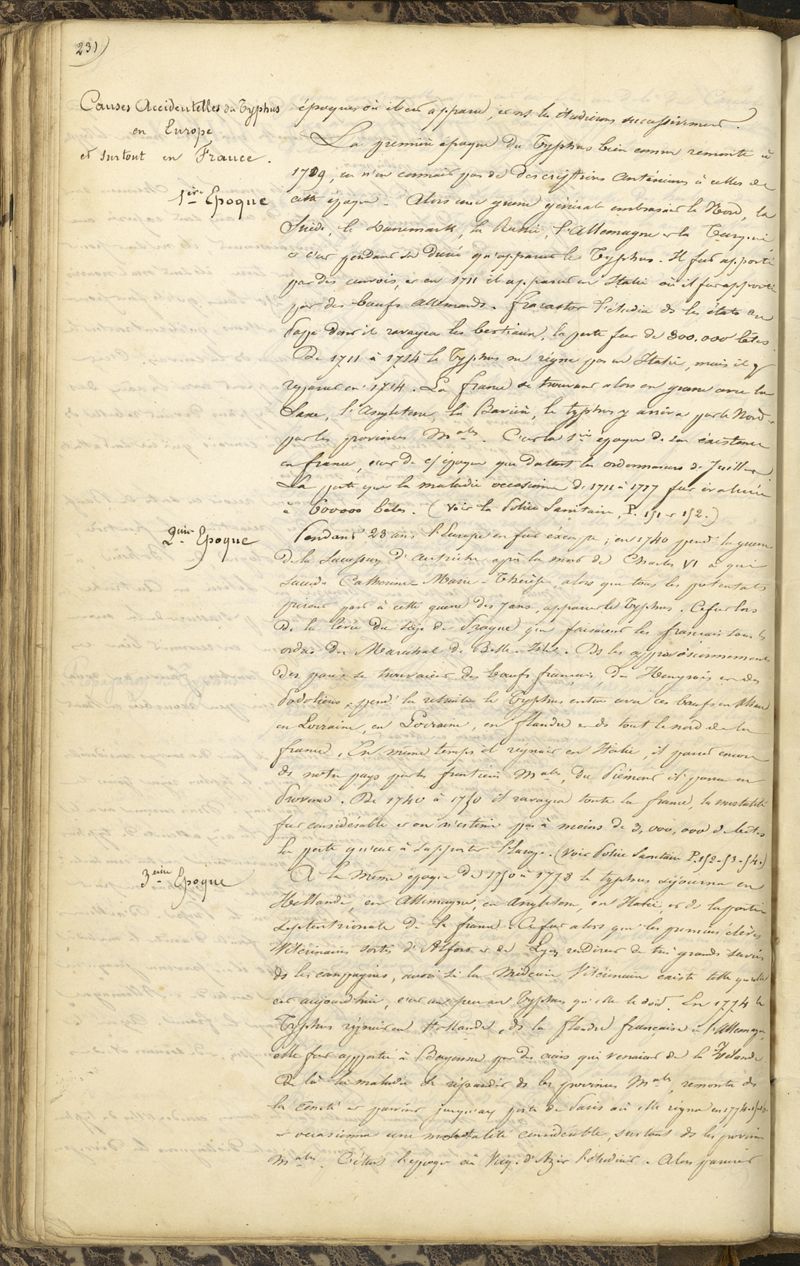 231)
Causes Accidentelles du Typhus
en Europe
et surtout en France.
époques où il est apparu, et nt les étudierons successivement.
La première époque du Typhus bien connu remonte à
1709, on n'en connait pas de descriptions antérieures à celles de
1ère Epoque
cette époque. Alors une guerre générale embrasait le Nord, la
Suède, le Danemark, la Russie, l'Allemagne et la Turquie
et c'est pendant sa durée qu'apparut le Typhus. Il fut apporté
par des convois, et en 1711 il apparut en Italie où il fut apporté
par des bœufs allemands. Fracastor l'étudia ds les états du
Pape dont il ravagea les bestiaux, la perte fut de 300,000 bêtes.
De 1711 à 1714 le Typhus ne règne pas en Italie, mais il y
reparut en 1714. La France se trouvant alors en guerre avec la
Saxe, l'Angleterre, la Bavière, le typhus y arriva par le Nord
par les provinces M^ales. C'est la 1ère époque de son existence
en france, c'est de c/ époque que datent les ordonnances de
La perte que la maladie occasionna de 1711 à 1717 fut évaluée
à 600000 bêtes. (Voir la Police Sanitaire, P. 151 et 152.)
2ème Epoque
Pendant 23 ans l'Europe en fut exempte; en 1740 pendt la guerre
de la Succession d'Autriche après la mort de Charles VI à qui
succéda Catherine Marie-Thérèse, alors que tous les potentats
prirent part à cette guerre des 7 ans, apparut le Typhus. Ce fut lors
de la levée du siège de Prague que faisaient les français sous les
ordres du Maréchal de Belle-Isle. Ds les approvisionnements
des parcs se trouvaient des bœufs français, des Hongrois et des
Podoliens, pendt la retraite le Typhus entra avec ces bœufs en Alsace
en Lorraine, en Flandre et ds tout le nord de la
france. En même temps il régnait en Italie, il passa encore
ds notre pays par les frontières M^ales, du Piémont il passa en
Provence. De 1740 à 1750 il ravagea toute la france, la mortalité
fut considérable et on n'estime pas à moins de 3,000,000 de bêtes
la perte qu'eut à supporter l'Europe. (Voir Police Sanitaire P. 152-53-54.)
3ème Epoque
A la même époque de 1750 à 1778 le typhus séjourna en
Hollande, en Allemagne, en Angleterre, en Italie, et ds la partie
septentrionale de la france. Ce fut alors que les premiers élèves
Vétérinaires sortis d'Alfort et de Lyon rendirent de très grands services
ds les campagnes, aussi si la Médecine Vétérinaire existe telle qu'elle
est aujourd'hui, c'est un peu au Typhus qu'elle le doit. En 1774 le
Typhus régnait en Hollande, ds la flandre française et l'Allemagne,
elle fut apportée à Bayonne par des cuirs qui venaient de la Zélande.
De là la maladie se répandit ds les provinces M^ales, remonta ds
la et parvint jusqu'aux portes de Paris où elle régna en 1774
et occasionna une mortalité considérable, surtout ds les provinces
M^ales. C'était l'époque où Vicq-d'Azir l'étudiait. Alors parurent